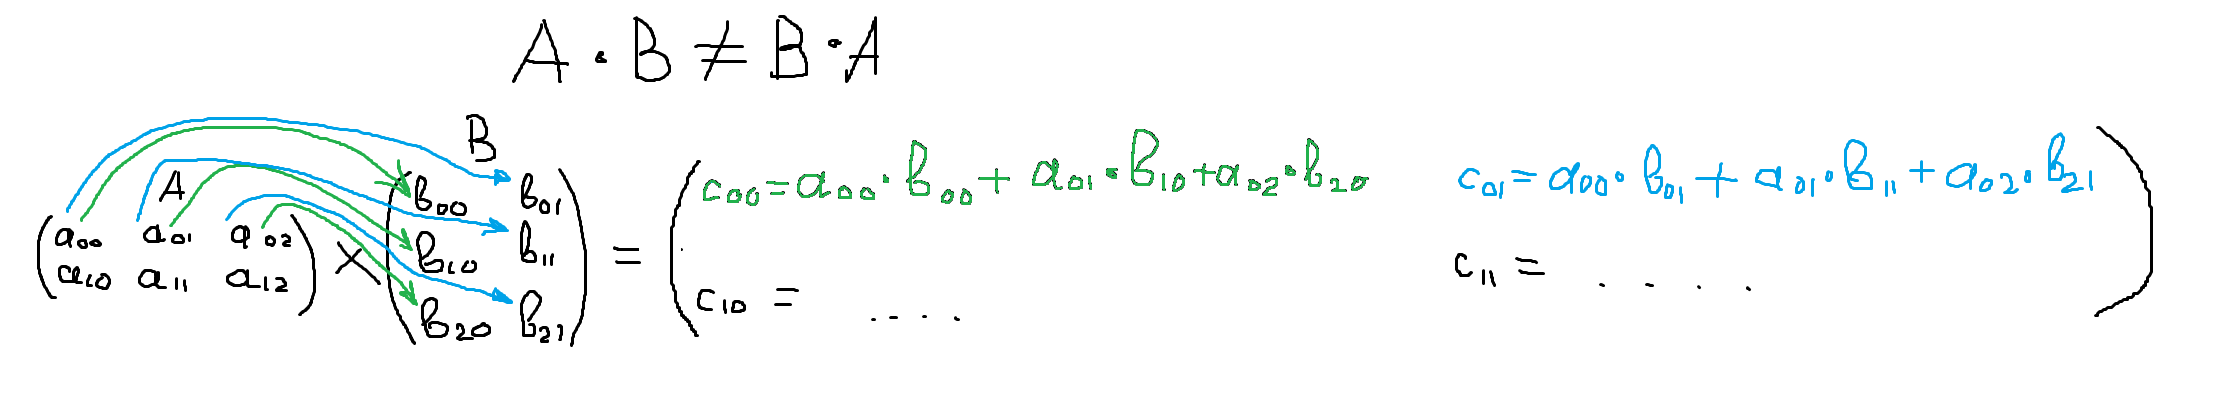 A · B ≠ B · A
B
A
(a00 a01 a02
a10 a11 a12) × (b00 b01
b10 b11
b20 b21) = (c00=a00·b00+a01·b10+a02·b20 c01=a00·b01+a01·b11+a02·b21
c10 = .... c11 = ....)